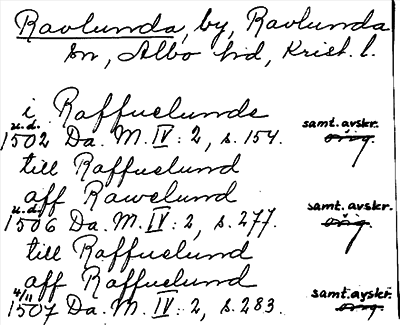 Ravlunda, by, Ravlunda
sn, Albo hd, Krist. l.
i Raffuelunde
u.d.
1502 Da. M. IV: 2, s. 154. samt. avskr.
orig.
till Raffuelund
aff Rawelund
u.d.
1506 Da. M. IV: 2, s. 277. samt. avskr.
orig.
till Raffuelund
aff Raffuelund
4/11
1507 Da. M. IV: 2, s. 283. samt. avskr.
orig.